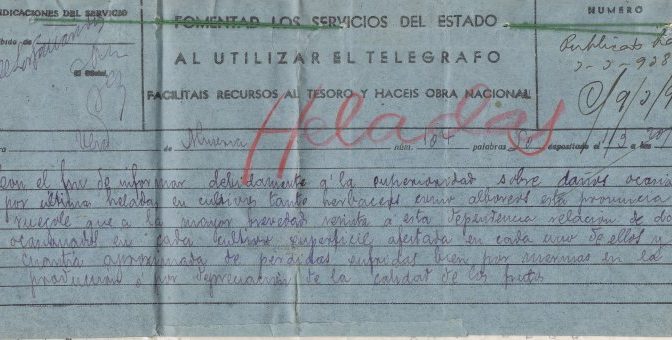 INDICACIONES DEL SERVICIO
FOMENTAR LOS SERVICIOS DEL ESTADO
NUMERO
AL UTILIZAR EL TELEGRAFO
FACILITAIS RECURSOS AL TESORO Y HACEIS OBRA NACIONAL
El Oficial,
Heladas
de Murcia núm. 164 palabras depositado el
con el fin de informar debidamente a la sobre daños
por última helada en cultivos tanto herbaceos como arboreos esta provincia
ruegole que a la mayor brevedad remita a esta dependencia relación de
ocasionados en cada cultivo superficie afectada en cada uno de ellos y
cuantia aproximada de perdidas sufridas bien por mermas en la
produccion o por depreciación de la calidad de los frutos